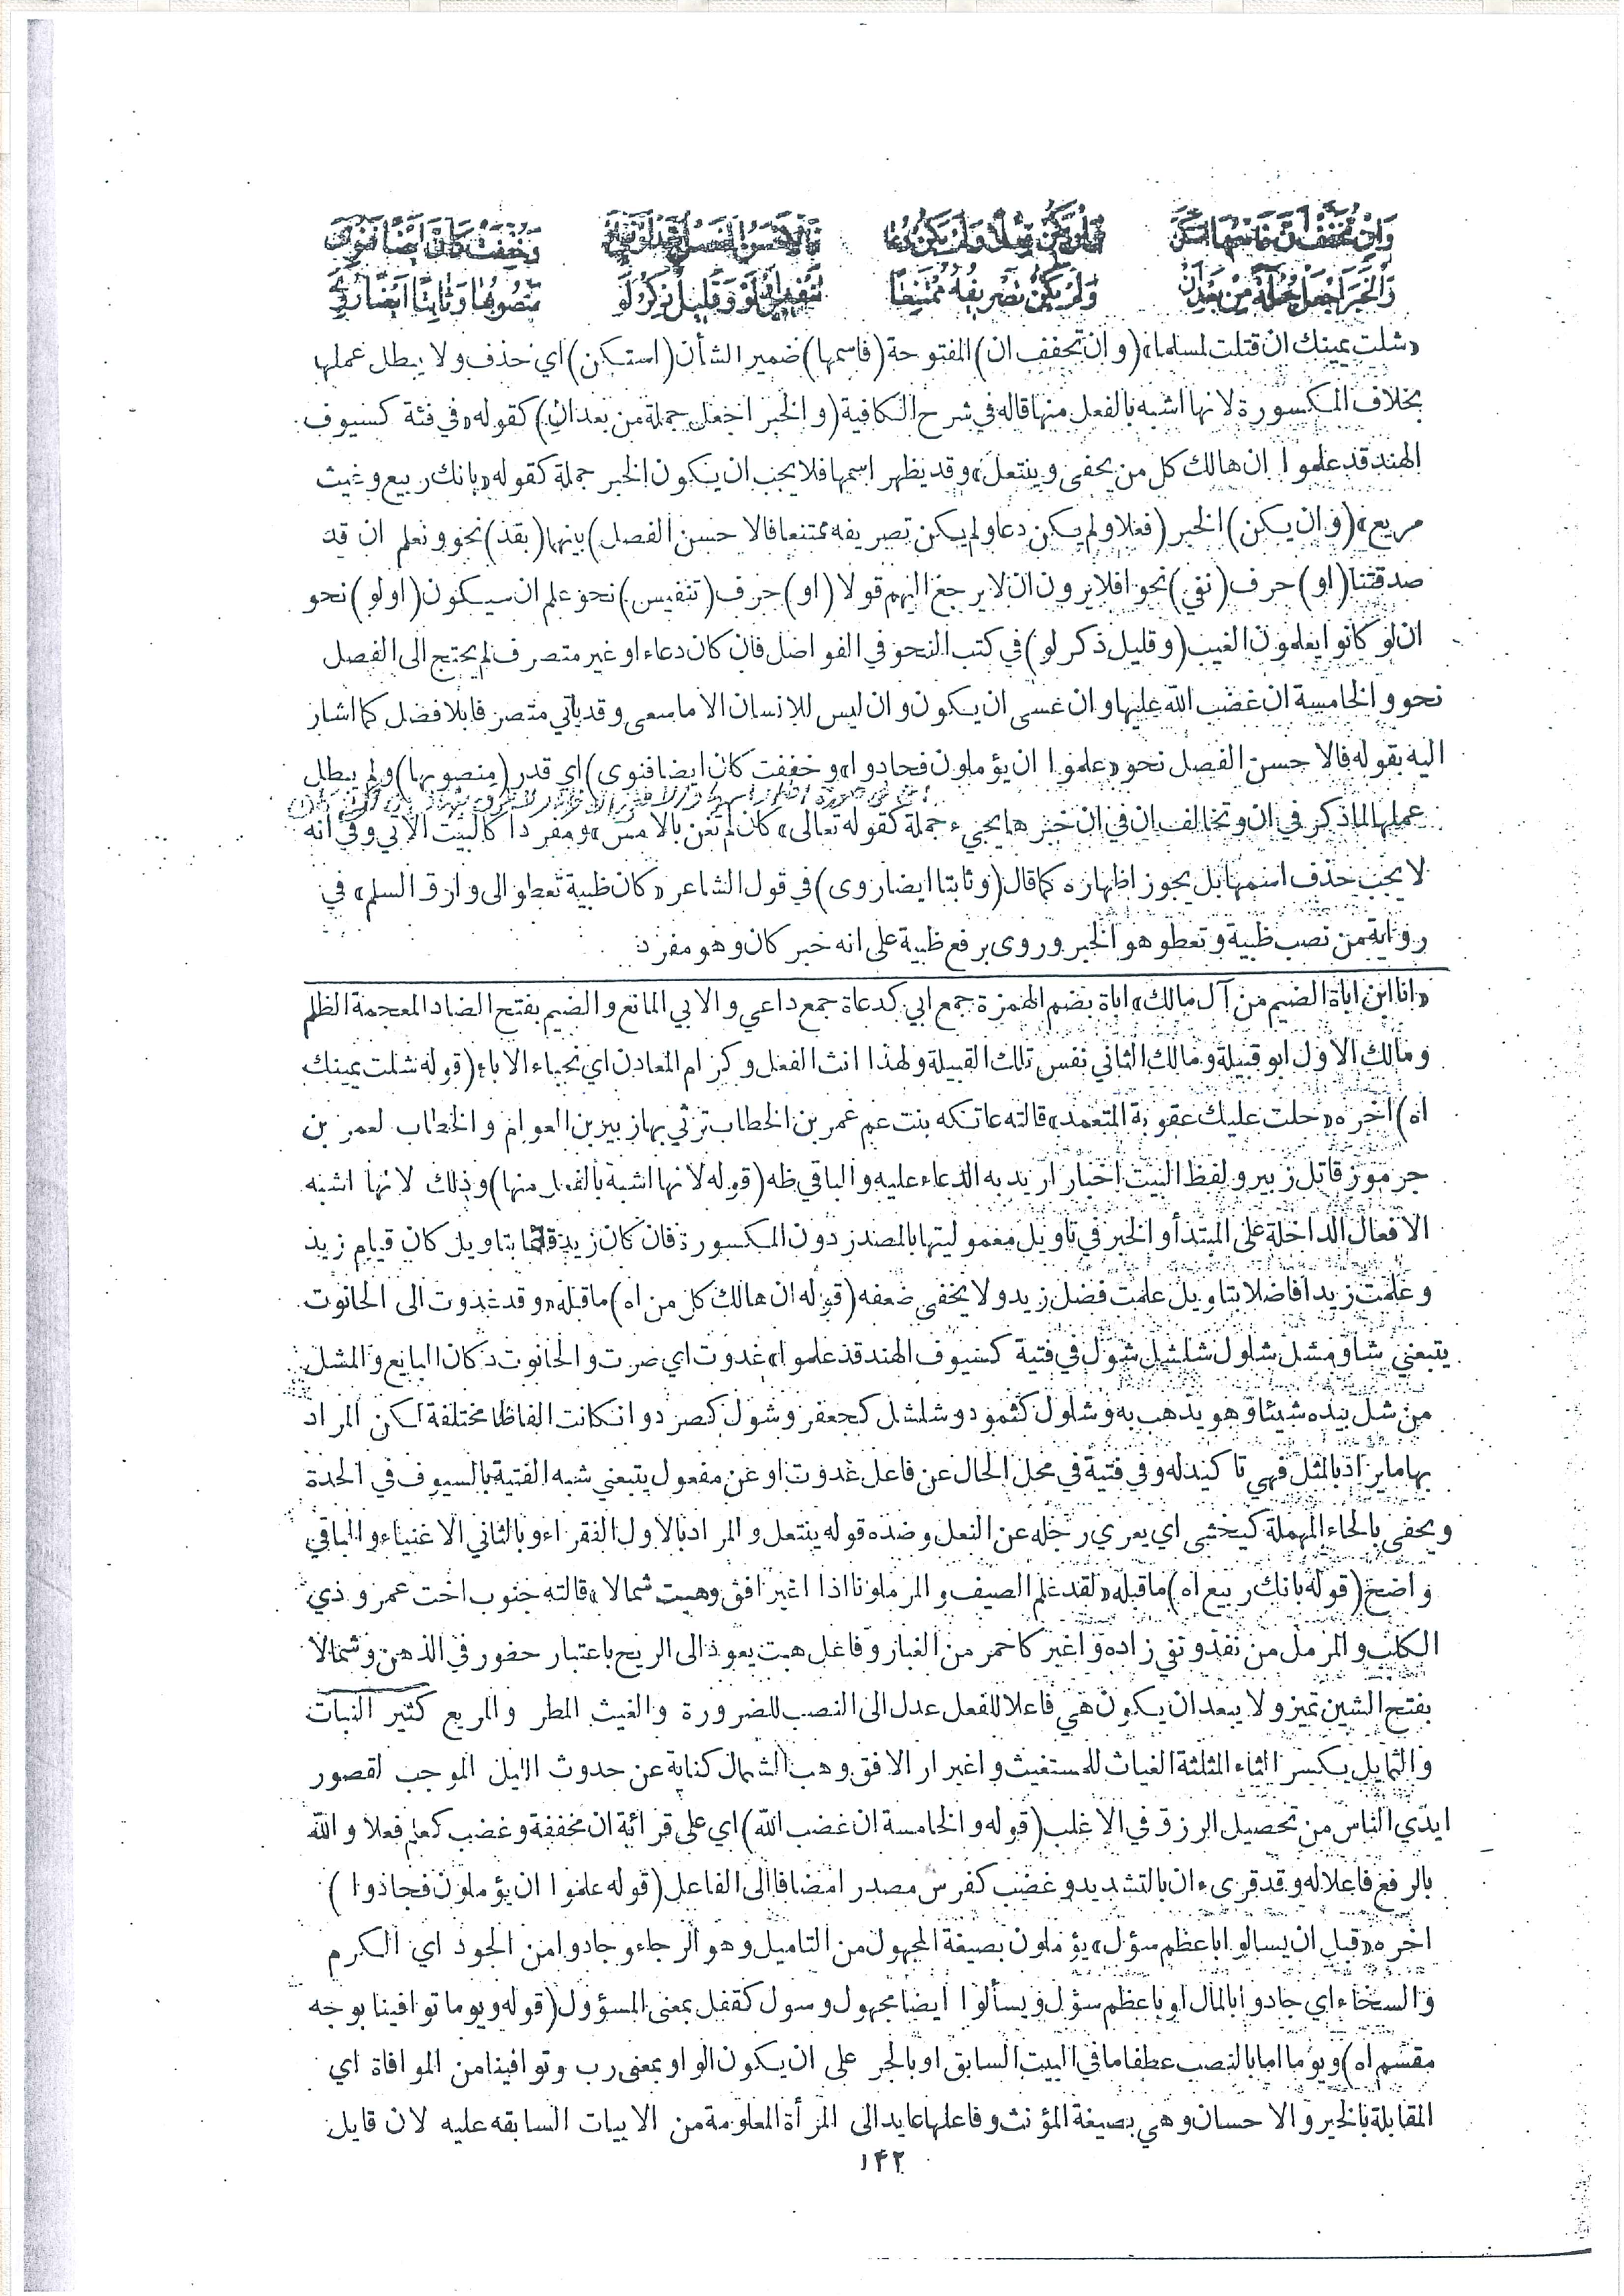 وَإِنْ تُخَفَّفْ أَنَّ فَاسْمُهَا اسْتَكَنْ وَإِنْ يَكُنْ فِعْلًا وَلَمْ يَكُنْ دُعَا فَالْأَحْسَنُ الْفَصْلُ بِقَدْ أَوْ نَفْيٍ أَوْ وَخُفِّفَتْ كَأَنَّ أَيْضًا فَنُوِي
وَالْخَبَرَ اجْعَلْ جُمْلَةً مِنْ بَعْدِ أَنْ وَلَمْ يَكُنْ تَصْرِيفُهُ مُمْتَنِعًا تَنْفِيسٍ أَوْ لَوْ وَقَلِيلٌ ذِكْرُ لَوْ مَنْصُوبُهَا وَثَابِتًا أَيْضًا رُوِي
«شلت يمينك ان قتلت لمسلما» (و ان تخفف ان) المفتوحة (فاسمها) ضمير الشأن (استكن) اي حذف ولا يبطل عملها
بخلاف المكسورة لانها اشبه بالفعل منها قاله في شرح الكافية (والخبر اجعل جملة من بعد ان) كقوله «في فئة كسيوف
الهند قد علموا ان هالك كل من يحفى وينتعل» وقد يظهر اسمها فلا يجب ان يكون الخبر جملة كقوله «بانك ربيع وغيث
مريع» (و ان يكن) الخبر (فعلا ولم يكن دعا ولم يكن تصريفه ممتنعا فالاحسن الفصل) بينها (بقد) نحو ونعلم ان قد
صدقتنا (او) حرف (نفي) نحو افلا يرون ان لا يرجع اليهم قولا (او) حرف (تنفيس) نحو علم ان سيكون (او لو) نحو
ان لو كانوا يعلمون الغيب (وقليل ذكر لو) في كتب النحو في الفواصل فان كان دعاء او غير متصرف لم يحتج الى الفصل
نحو والخامسة ان غضب الله عليها وان عسى ان يكون وان ليس للانسان الا ما سعى وقد ياتي متصرفا بلا فصل كما اشار
اليه بقوله فالاحسن الفصل نحو «علموا ان يؤملون فجادوا» (وخففت كان ايضا فنوى) اي قدر (منصوبها) ولم يبطل
عملها لما ذكر في ان وتخالف ان في ان خبرها يجيء جملة كقوله تعالى «كان لم تغن بالامس» ومفردا كالبيت الاتي وفي انه
لا يجب حذف اسمها بل يجوز اظهاره كما قال (وثابتا ايضا روى) في قول الشاعر «كان ظبية تعطو الى وارق السلم» في
رواية من نصب ظبية وتعطو هو الخبر وروى برفع ظبية على انه خبر كان وهو مفرد
«انا ابن اباة الضيم من آل مالك» اباة بضم الهمزة جمع ابي كدعاة جمع داعي والابي المانع والضيم بفتح الضاد المعجمة الظلم
ومالك الاول ابو قبيلة ومالك الثاني نفس تلك القبيلة ولهذا انث الفعل وكرام المعادن اي نجباء الاباء (قوله شلت يمينك
اه) اخره «حلت عليك عقوبة المتعمد» قالته عاتكه بنت عم عمر بن الخطاب ترثي بها زبير بن العوام والخطاب لعمر بن
جرموز قاتل زبير ولفظ البيت اخبار اريد به الدعاء عليه والباقي ظه (قوله لانها اشبه بالفعل منها) وذلك لانها اشبه
الافعال الداخلة على المبتدأ والخبر في تاويل معموليتها بالمصدر دون المكسورة فان كان زيد قائما بتاويل كان قيام زيد
وعلمت زيدا فاضلا بتاويل علمت فضل زيد ولا يخفى ضعفه (قوله ان هالك كل من اه) ما قبله «وقد غدوت الى الحانوت
يتبعني شاو مشل شلول شلشل شول في فتية كسيوف الهند قد علموا» غدوت اي صرت والحانوت دكان البايع والمشل
من شل بيده شيئا وهو يذهب به وشلول كثمود وشلشل كجعفر وشول كصرد وانكانت الفاظا مختلفة لكن المراد
بها ما يراد بالمثل فهي تاكيد له وفي فتية في محل الحال عن فاعل غدوت او عن مفعول يتبعني شبه الفتية بالسيوف في الحدة
ويحفى بالحاء المهملة كيخشى اي يعري رجله عن النعل وضده قوله ينتعل والمراد بالاول الفقراء وبالثاني الاغنياء والباقي
واضح (قوله بانك ربيع اه) ما قبله «لقد علم الضيف والمرملون اذا اغبر افق وهبت شمالا» قالته جنوب اخت عمرو ذي
الكلب والمرمل من نفد وتفي زاده واغبر كاحمر من الغبار وفاعل هبت يعود الى الريح باعتبار حضور في الذهن وشمالا
بفتح الشين تميز ولا يبعد ان يكون هي فاعلا للفعل عدل الى النصب للضرورة والغيث المطر والمريع كثير النبات
والثمايل بكسر الثاء المثلثة الغياث للمستغيث واغبرار الافق وهب الشمال كناية عن حدوث الليل الموجب لقصور
ايدي الناس من تحصيل الرزق في الاغلب (قوله والخامسة ان غضب الله) اي على قرائة ان مخففة وغضب كعلم فعلا والله
بالرفع فاعلا له وقد قرىء ان بالتشديد وغضب كفرس مصدرا مضافا الى الفاعل (قوله علموا ان يؤملون فجادوا)
اخره «قبل ان يسالوا باعظم سؤل» يؤملون بصيغة المجهول من التاميل وهو الرجاء وجادوا من الجود اي الكرم
والسخاء اي جادوا بالمال او باعظم سؤل ويسألوا ايضا مجهول وسول كقفل بمعنى المسؤول (قوله ويوما توافينا بوجه
مقسم اه) ويوما اما بالنصب عطفا ما في البيت السابق او بالجر على ان يكون الواو بمعنى رب وتوافينا من الموافاة اي
المقابلة بالخير والاحسان وهي بصيغة المؤنث وفاعلها عايد الى المرأة المعلومة من الابيات السابقه عليه لان قايل
۱۴۲